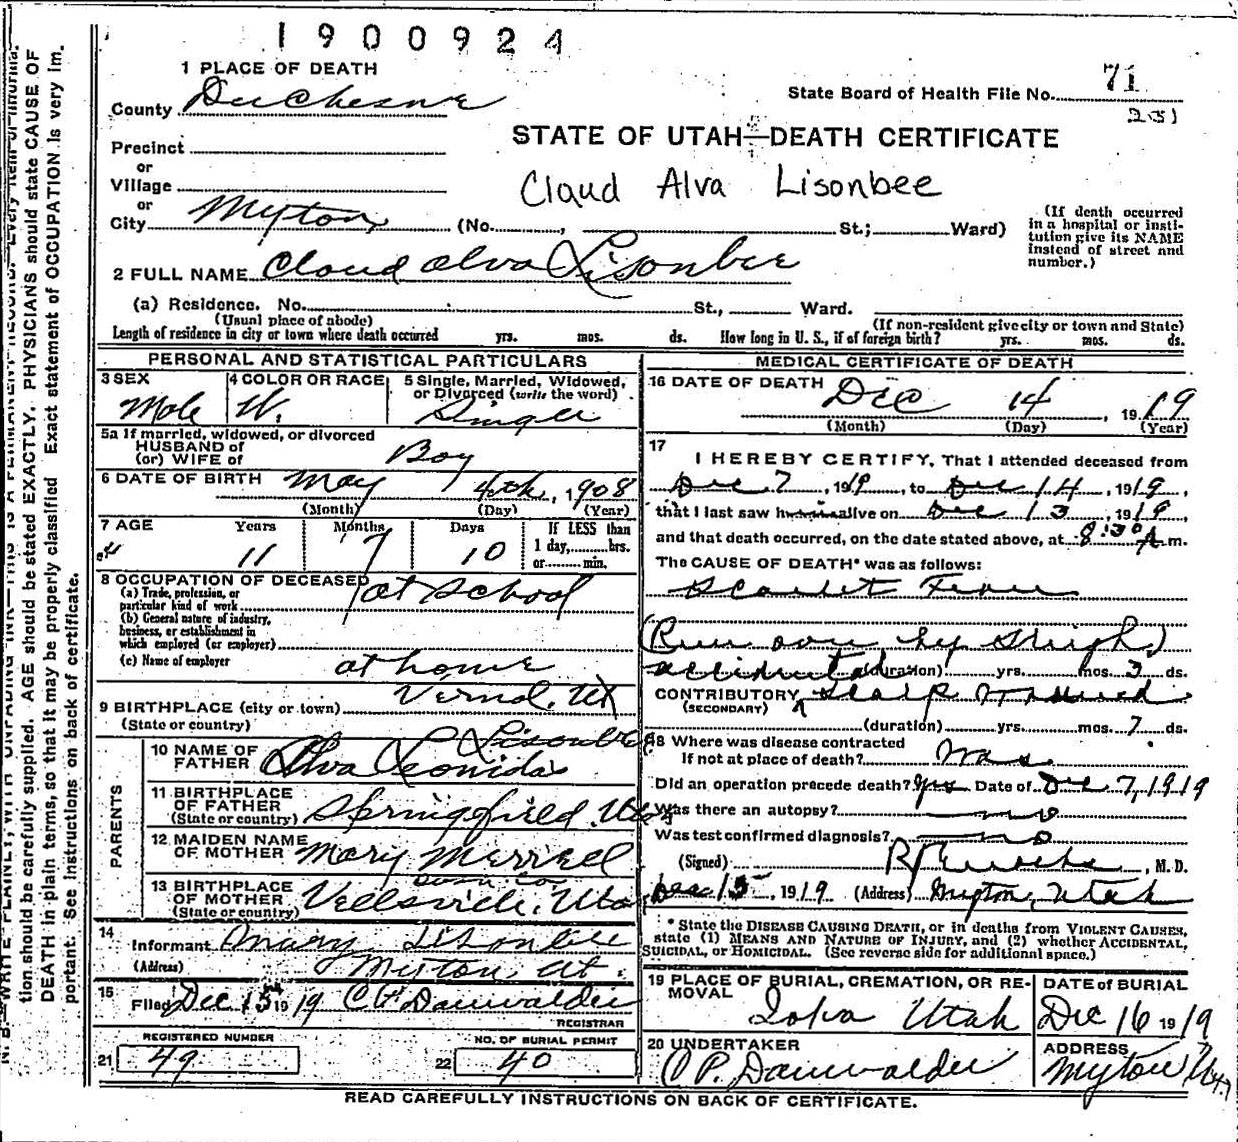 1900924
1 PLACE OF DEATH
County Duchesne
State Board of Health File No. 71
231
STATE OF UTAH—DEATH CERTIFICATE
Precinct
or
Village
or
City Myton (No. , St.; Ward)
Claud Alva Lisonbee
(If death occurred in a hospital or insti-
tution give its NAME
instead of street and
number.)
2 FULL NAME Cloud Alva Lisonbee
(a) Residence. No. St., Ward.
(Usual place of abode)
(If non-resident give city or town and State)
Length of residence in city or town where death occurred yrs. mos. ds. How long in U. S., if of foreign birth? yrs. mos. ds.
PERSONAL AND STATISTICAL PARTICULARS
3 SEX Male
4 COLOR OR RACE W.
5 Single, Married, Widowed,
or Divorced (write the word) Single
5a If married, widowed, or divorced
HUSBAND of
(or) WIFE of Boy
6 DATE OF BIRTH May 4th, 1908
(Month) (Day) (Year)
7 AGE Years Months Days If LESS than
1 day, hrs.
or min.
11 7 10
8 OCCUPATION OF DECEASED
(a) Trade, profession, or
particular kind of work at School
(b) General nature of industry,
business, or establishment in
which employed (or employer)
(c) Name of employer at home
9 BIRTHPLACE (city or town) Vernal, Ut
(State or country)
PARENTS
10 NAME OF
FATHER Alva Leonidas Lisonbee
11 BIRTHPLACE
OF FATHER
(State or country) Springfield, Utah
12 MAIDEN NAME
OF MOTHER Mary Merrell
13 BIRTHPLACE
OF MOTHER
(State or country) Vellsvile, Utah
14
Informant Mary Lisonbee
(Address) Myton, Ut.
15
Filed Dec 15 1919 Danwalder
REGISTRAR
REGISTERED NUMBER
21 49
NO. OF BURIAL PERMIT
22 40
MEDICAL CERTIFICATE OF DEATH
16 DATE OF DEATH Dec 14, 1919
(Month) (Day) (Year)
17
I HEREBY CERTIFY, That I attended deceased from
Dec 7, 1919, to Dec 14, 1919,
that I last saw him alive on Dec 13, 1919,
and that death occurred, on the date stated above, at 8:30 A. m.
The CAUSE OF DEATH* was as follows:
Scarlet Fever
(Run over by Sleigh)
accidental (duration) yrs. mos. 3 ds.
CONTRIBUTORY Scalp Wound
(SECONDARY)
(duration) yrs. mos. 7 ds.
18 Where was disease contracted
If not at place of death?
Did an operation precede death? Yes Date of Dec 7, 1919
Was there an autopsy? no
Was test confirmed diagnosis? no
(Signed) , M. D.
Dec 15, 1919 (Address) Myton, Utah
*State the DISEASE CAUSING DEATH, or in deaths from VIOLENT CAUSES,
state (1) MEANS AND NATURE OF INJURY, and (2) whether ACCIDENTAL,
SUICIDAL, or HOMICIDAL. (See reverse side for additional space.)
19 PLACE OF BURIAL, CREMATION, OR RE-
MOVAL Ioka Utah
DATE of BURIAL
Dec 16 1919
20 UNDERTAKER
O P. Danwalder
ADDRESS
Myton Ut.
READ CAREFULLY INSTRUCTIONS ON BACK OF CERTIFICATE.
N. B.—WRITE PLAINLY, WITH UNFADING INK—THIS IS A PERMANENT RECORD. Every item of informa-
tion should be carefully supplied. AGE should be stated EXACTLY. PHYSICIANS should state CAUSE OF
DEATH in plain terms, so that it may be properly classified. Exact statement of OCCUPATION is very im-
portant. See instructions on back of certificate.